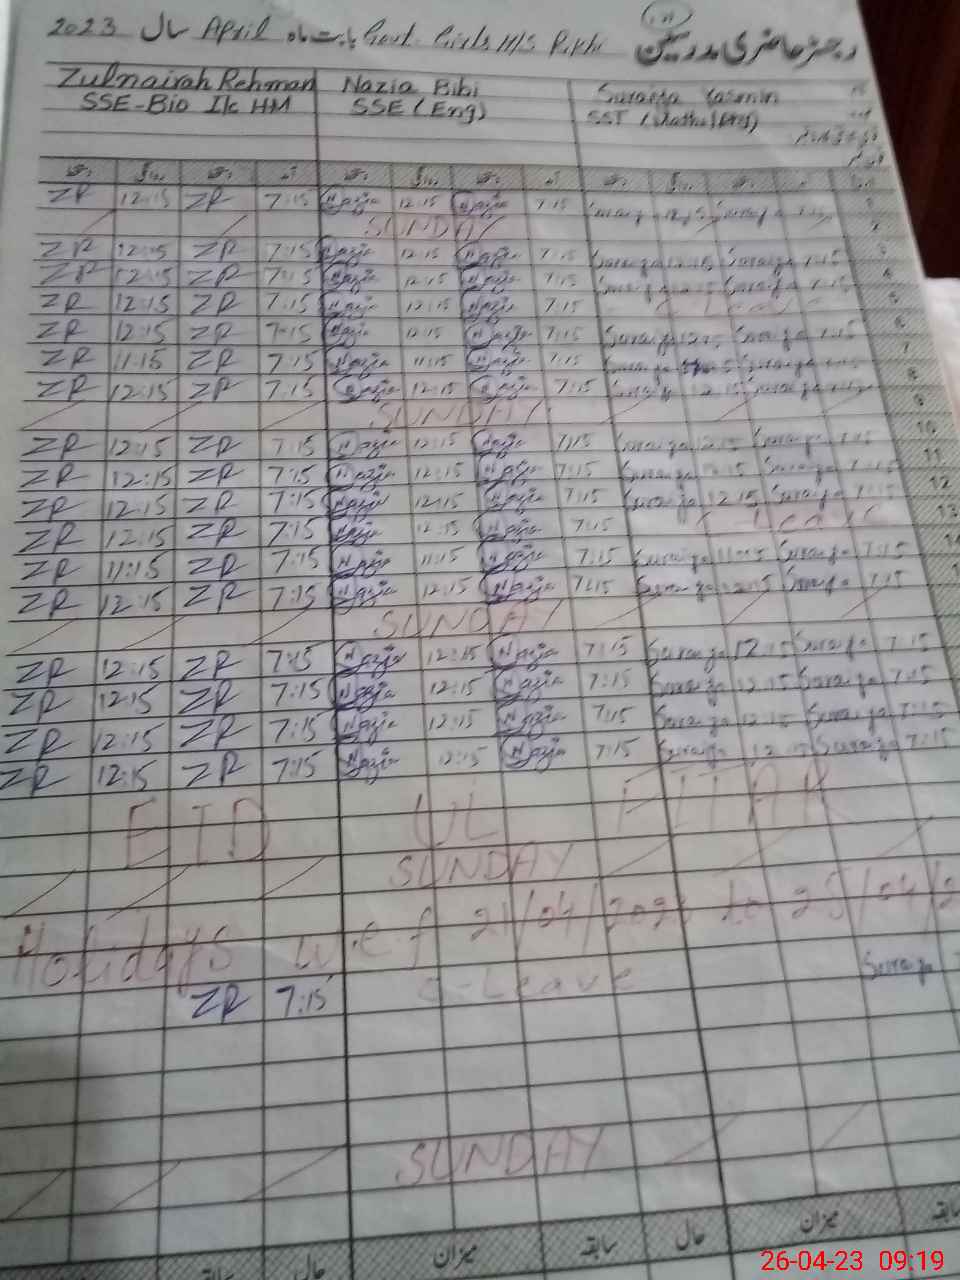 رجسٹر حاضری مدرسین Govt. Girls H/S بابت ماہ April سال 2023
Zulnairah Rehman Nazia Bibi Suraiya Yasmin
SSE-Bio I/c HM SSE (Eng) SST
ZR 12:15 ZR 7:15 Nazia 12:15 Nazia 7:15 Suraiya 12:15 Suraiya 7:15 1
SUNDAY 2
ZR 12:15 ZR 7:15 Nazia 12:15 Nazia 7:15 Suraiya 12:15 Suraiya 7:15 3
ZR 12:15 ZR 7:15 Nazia 12:15 Nazia 7:15 Suraiya 12:15 Suraiya 7:15 4
ZR 12:15 ZR 7:15 Nazia 12:15 Nazia 7:15 C Leave 5
ZR 12:15 ZR 7:15 Nazia 12:15 Nazia 7:15 Suraiya 12:15 Suraiya 7:15 6
ZR 11:15 ZR 7:15 Nazia 11:15 Nazia 7:15 Suraiya Suraiya 7:15 7
ZR 12:15 ZR 7:15 Nazia 12:15 Nazia 7:15 Suraiya 12:15 Suraiya 7:15 8
SUNDAY 9
ZR 12:15 ZR 7:15 Nazia 12:15 Nazia 7:15 Suraiya 12:15 Suraiya 7:15 10
ZR 12:15 ZR 7:15 Nazia 12:15 Nazia 7:15 Suraiya 12:15 Suraiya 7:15 11
ZR 12:15 ZR 7:15 Nazia 12:15 Nazia 7:15 Suraiya 12:15 Suraiya 7:15 12
ZR 12:15 ZR 7:15 Nazia 12:15 Nazia 7:15 C Leave 13
ZR 11:15 ZR 7:15 Nazia 11:15 Nazia 7:15 Suraiya 11:15 Suraiya 7:15 14
ZR 12:15 ZR 7:15 Nazia 12:15 Nazia 7:15 Suraiya 12:15 Suraiya 7:15
SUNDAY
ZR 12:15 ZR 7:15 Nazia 12:15 Nazia 7:15 Suraiya 12:15 Suraiya 7:15
ZR 12:15 ZR 7:15 Nazia 12:15 Nazia 7:15 Suraiya 12:15 Suraiya 7:15
ZR 12:15 ZR 7:15 Nazia 12:15 Nazia 7:15 Suraiya 12:15 Suraiya 7:15
ZR 12:15 ZR 7:15 Nazia 12:15 Nazia 7:15 Suraiya 12:15 Suraiya 7:15
EID UL FITAR
SUNDAY
Holidays w.e.f 21/04/2023 to 25/04/2
ZR 7:15 C-Leave Suraiya
SUNDAY
میزان حال سابقہ میزان حال
26-04-23 09:19